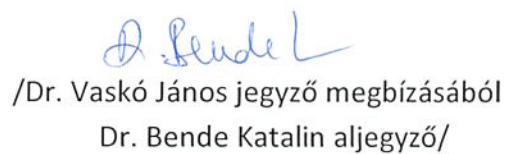 D. Bende L
/Dr. Vaskó János jegyző megbízásából
Dr. Bende Katalin aljegyző/